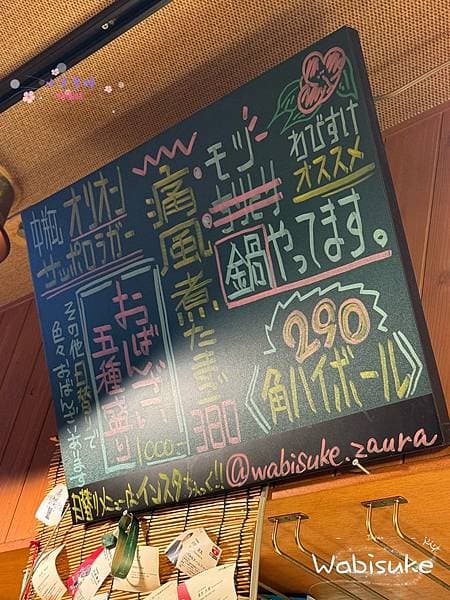 わびすけ
オススメ
モツ
鍋やってます。
290
角ハイボール
痛風煮たまご
380
おばんざい
五種盛り
1000-
中瓶
オリオン
サッポロラガー
その他日替りで
色々おすすめあります
日替りメニューはインスタちぇっく!!
@wabisuke.zaura
Wabisuke